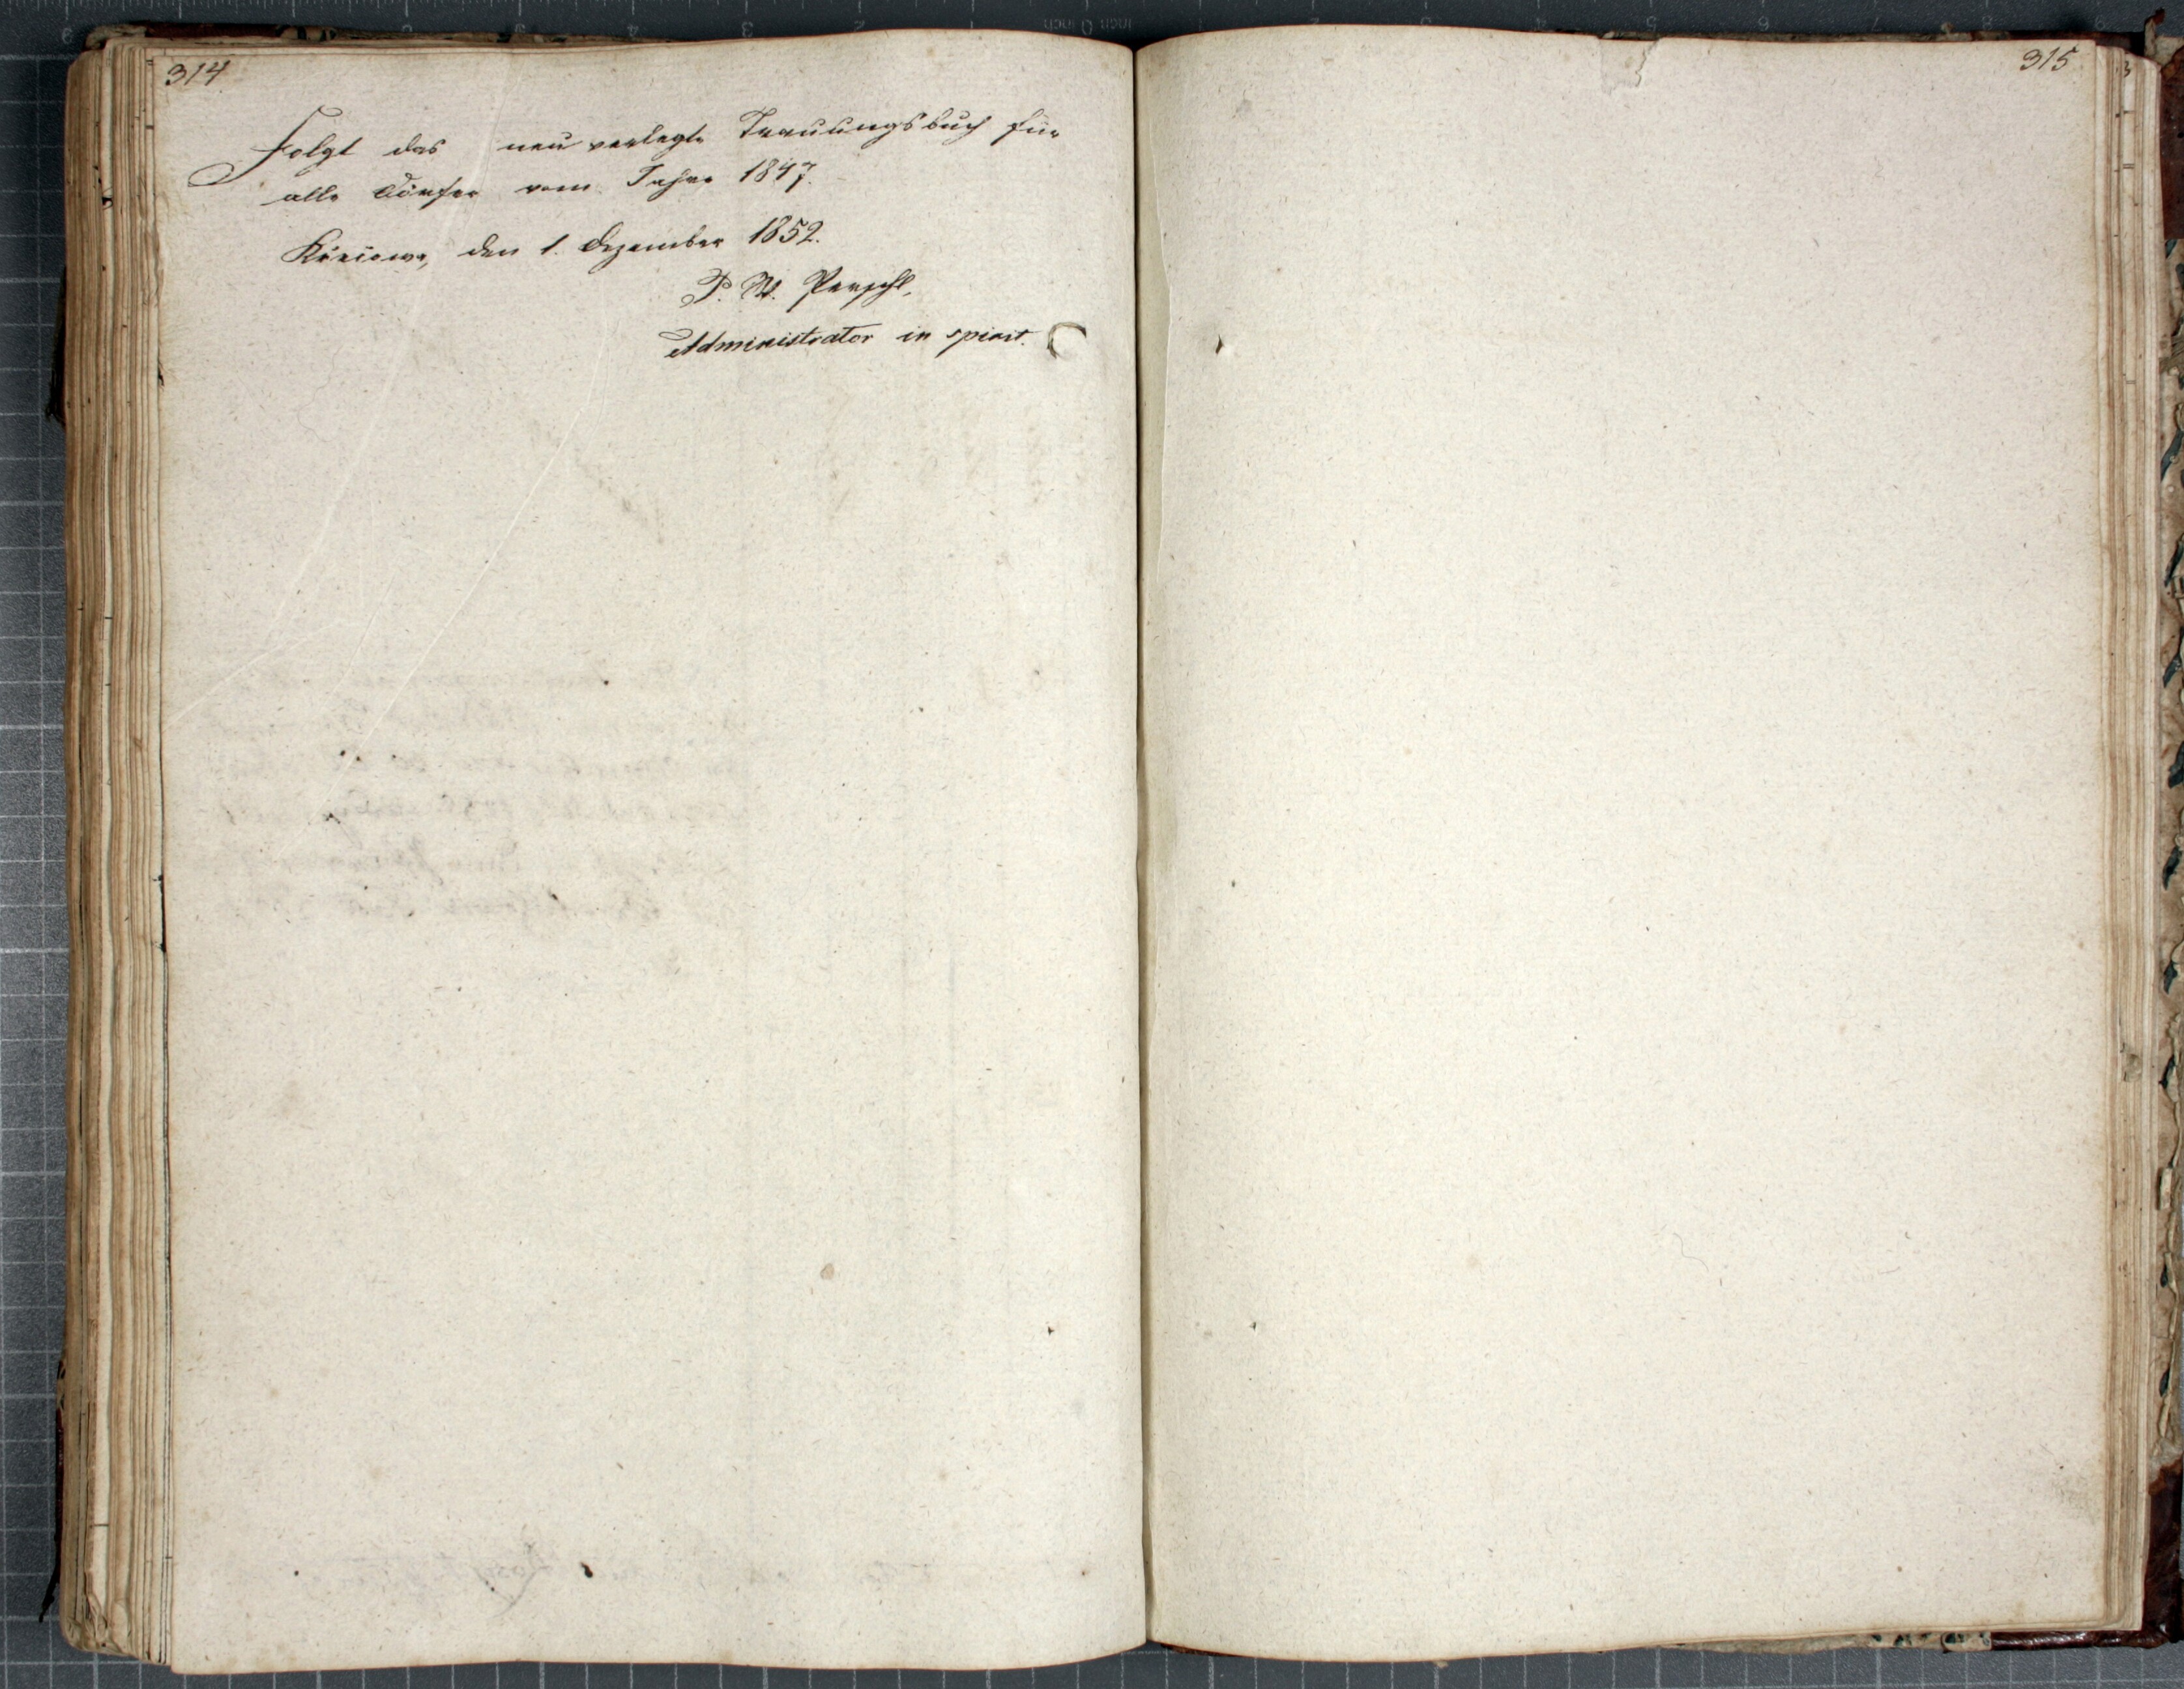 314
Folgt das neu verlegte Trauungsbuch für
alle Dörfer vom Jahre 1847.
den 1. Dezember 1852.
P. W.
Administrator in spirit.
315